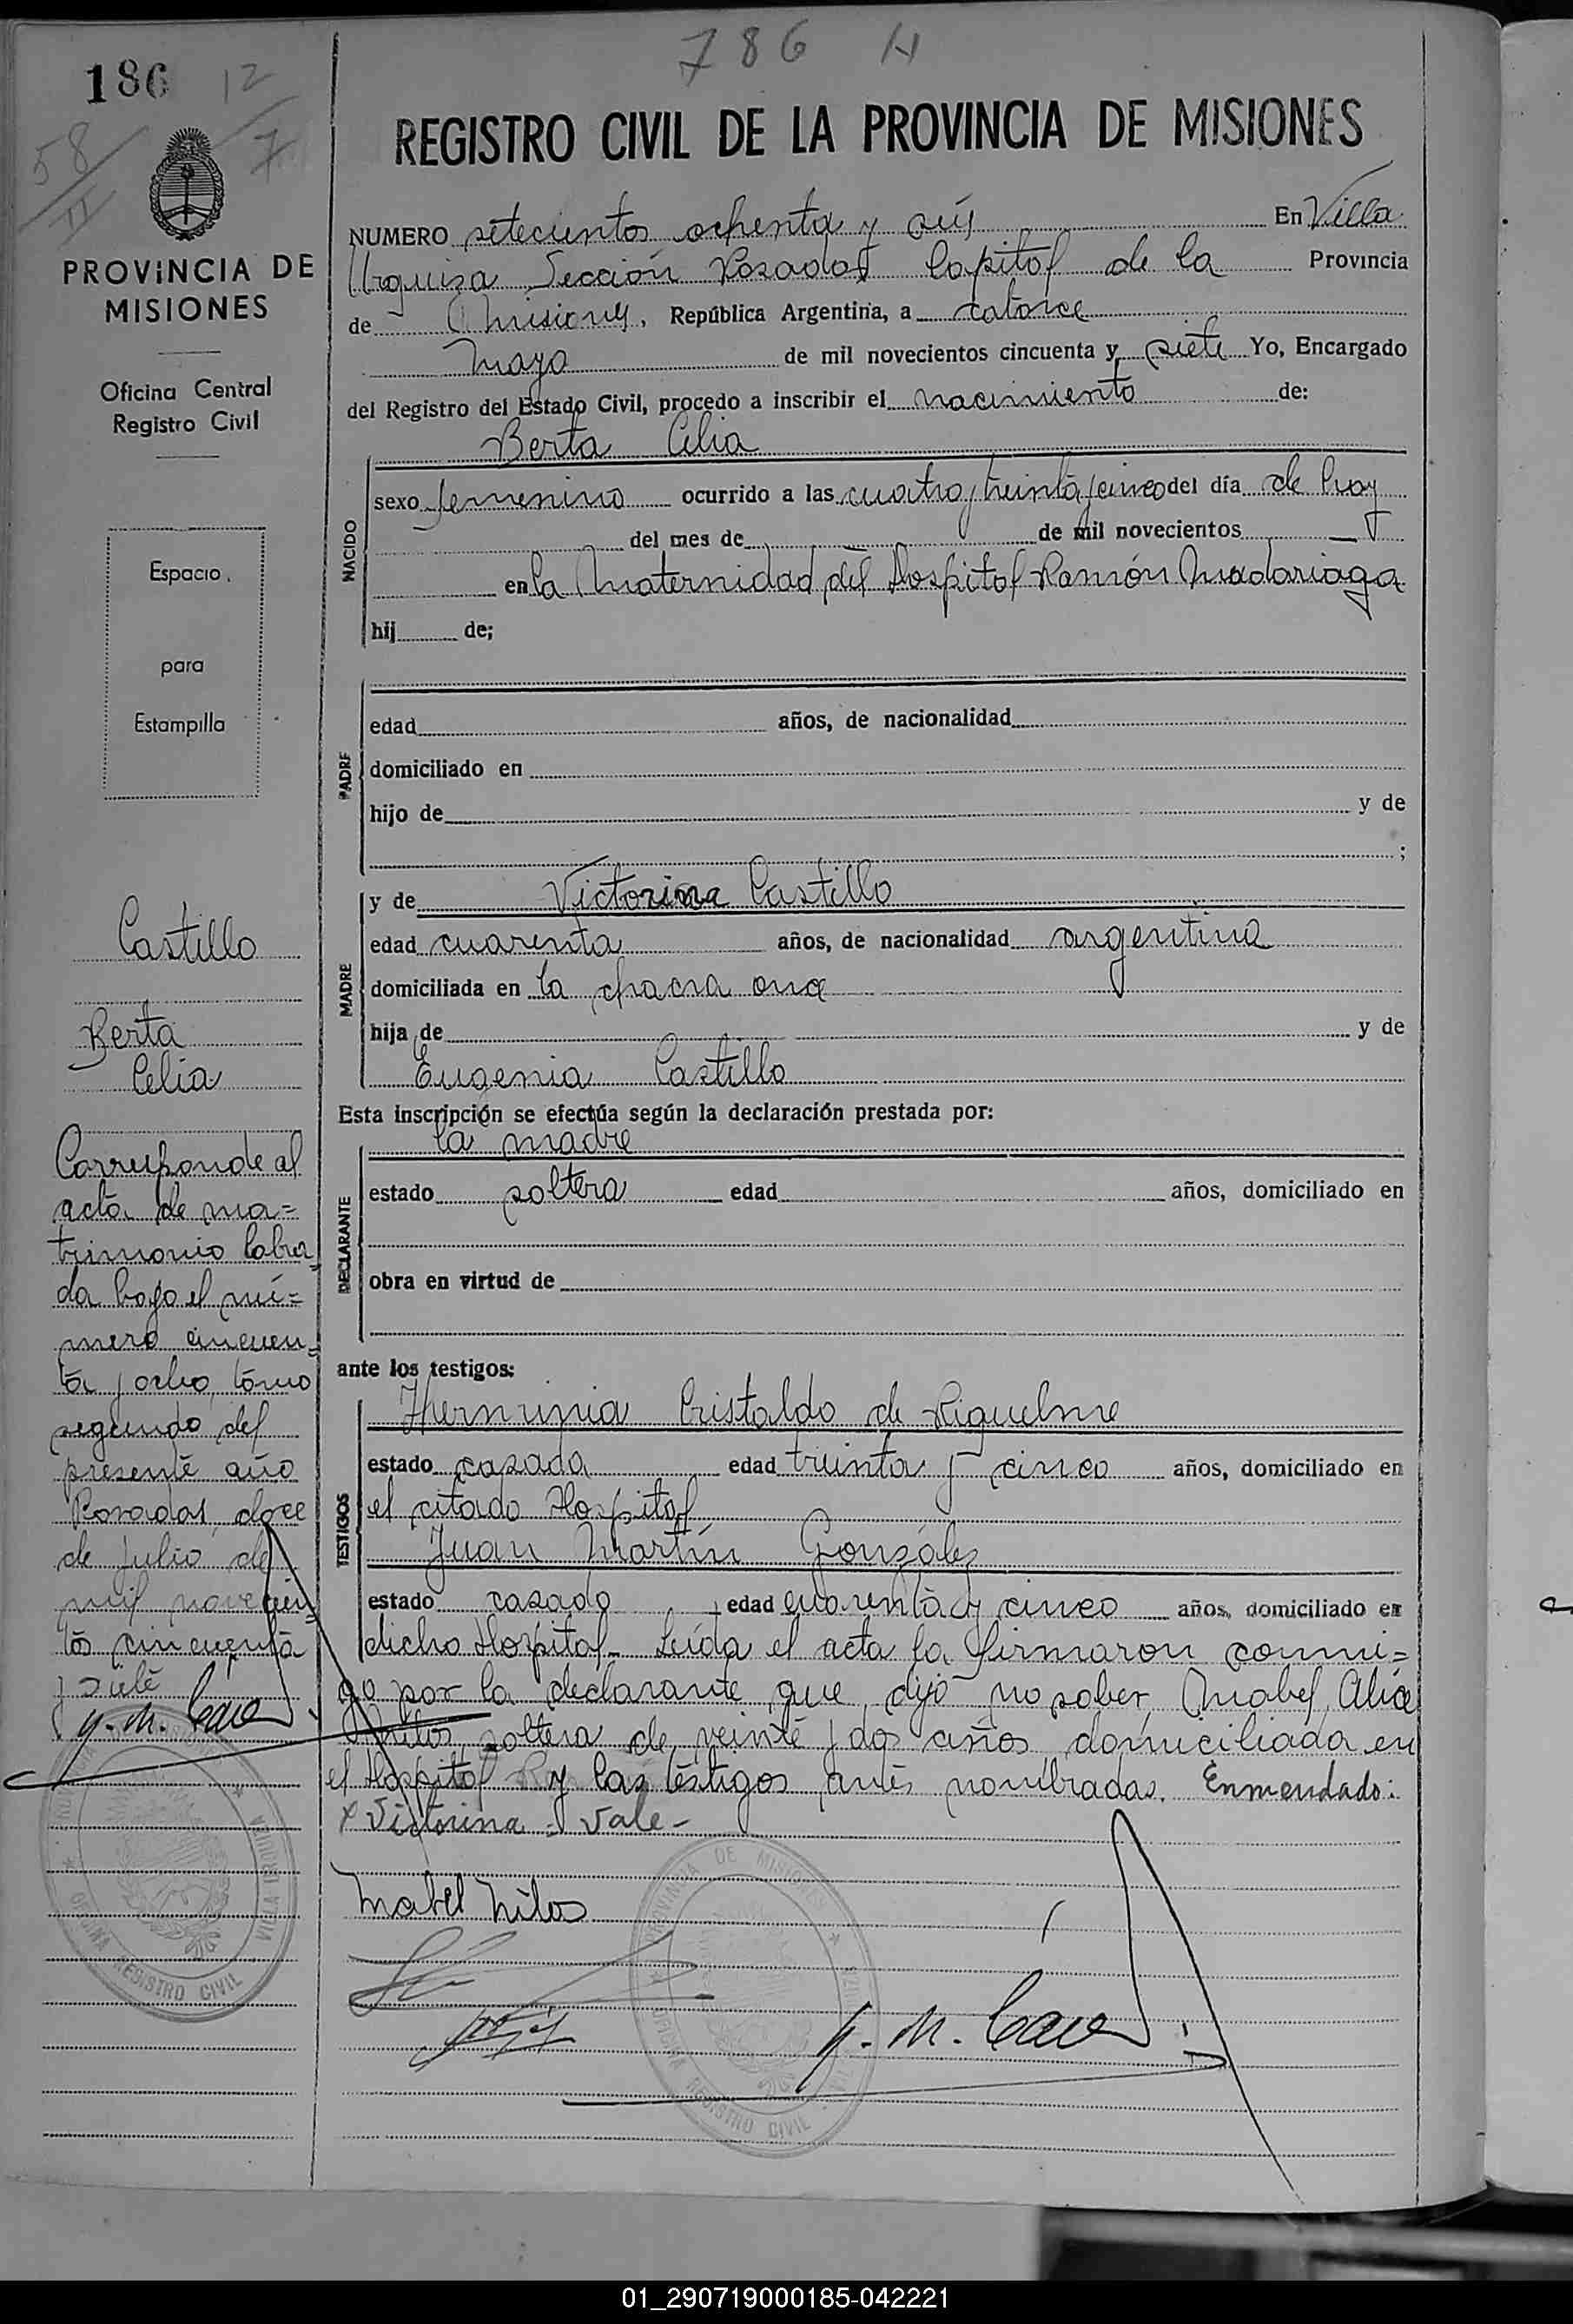 786 H
186
12
7
58
II
PROVINCIA DE
MISIONES
Oficina Central
Registro Civil
Espacio
para
Estampilla
Castillo
Berta
Celia
Corresponde al
acta de ma=
trimonio labra
da bajo el nú=
mero cincuen=
ta y ocho, tomo
segundo del
presente año
Posadas, doce
de Julio de
mil novecien
tos cincuenta
y siete
REGISTRO CIVIL DE LA PROVINCIA DE MISIONES
NUMERO setecientos ochenta y seis En Villa
Urquiza Sección Posadas Capital de la Provincia
de Misiones, República Argentina, a catorce
Mayo de mil novecientos cincuenta y siete Yo, Encargado
del Registro del Estado Civil, procedo a inscribir el nacimiento de:
Berta Celia
NACIDO
sexo femenino ocurrido a las cuatro y treinta y cinco del día de hoy
del mes de de mil novecientos
en la Maternidad del Hospital Ramón Madariaga
hij de;
PADRE
edad años, de nacionalidad
domiciliado en
hijo de y de
;
MADRE
y de Victorina Castillo
edad cuarenta años, de nacionalidad argentina
domiciliada en la chacra once
hija de y de
Eugenia Castillo
Esta inscripción se efectúa según la declaración prestada por:
la madre
DECLARANTE
estado soltera edad años, domiciliado en
obra en virtud de
ante los testigos:
TESTIGOS
Herminia Cristaldo de Riquelme
estado casada edad treinta y cinco años, domiciliado en
el citado Hospital
Juan Martín González
estado casado edad cuarenta y cinco años, domiciliado en
dicho Hospital - Leída el acta la firmaron conmi=
go por la declarante que dijo no saber, Mabel Alicia
soltera de veinte y dos años domiciliada en
el Hospital y los testigos antes nombrados. Enmendado:
x Victorina - Vale -
Mabel
PROVINCIA DE MISIONES
OFICINA REGISTRO CIVIL
VILLA URQUIZA
01_290719000185-042221